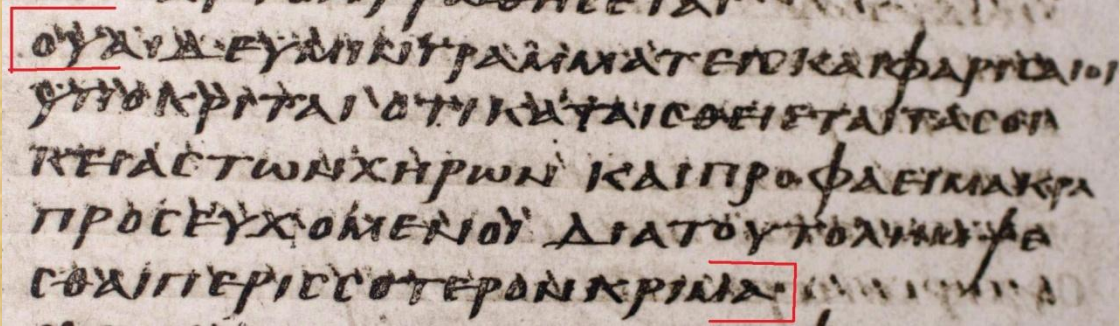 ΟΥΑΙΔΕΥΜΙΝΓΡΑΜΜΑΤΕΙϹΚΑΙΦΑΡΙϹΑΙΟΙ
ΥΠΟΚΡΙΤΑΙ ΟΤΙΚΑΤΑΙϹΘΕΙΕΤΑΙΤΑϹΟΙ
ΚΕΙΑϹΤΩΝΧΗΡΩΝ ΚΑΙΠΡΟΦΑϹΕΙΜΑΚΡΑ
ΠΡΟϹΕΥΧΟΜΕΝΟΙ ΔΙΑΤΟΥΤΟΛΗΜΨΕ
ϹΘΑΙΠΕΡΙϹϹΟΤΕΡΟΝΚΡΙΜΑ